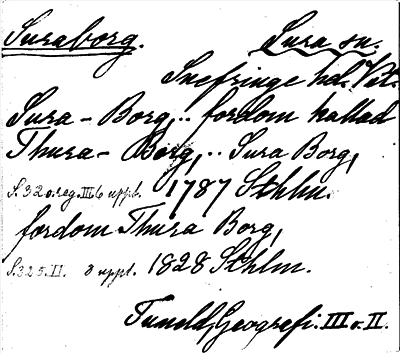 Suraborg. Sura sn.
Snefringe hd. Vst.
Sura-Borg,.. fordom kallad
Thura-Borg,.. Sura Borg,
S. 32 o. reg. III. 6 uppl. 1787 Sthlm.
fordom Thura Borg,
S. 325. II. 8 uppl. 1828 Sthlm.
Tuneld, Geografi. III o. II.